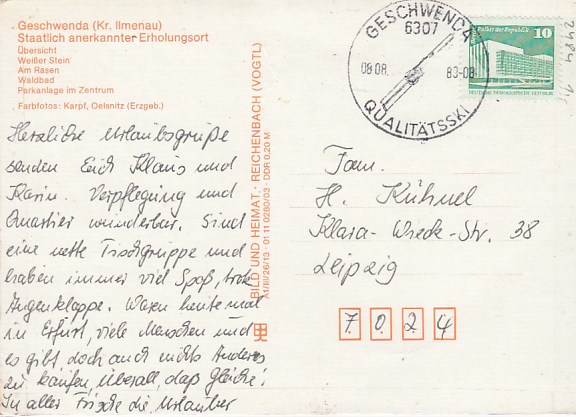 Geschwenda (Kr. Ilmenau)
Staatlich anerkannter Erholungsort
Übersicht
Weißer Stein
Am Rasen
Waldbad
Parkanlage im Zentrum
Farbfotos: Karpf, Oelsnitz (Erzgeb.)
Herzliche Urlaubsgrüße
senden Euch Klaus und
Karin. Verpflegung und
Quartier wunderbar. Sind
eine nette Tischgruppe und
haben immer viel Spaß, trotz
Augenklappe. Waren heute mal
in Erfurt, viele Menschen und
es gibt doch auch nichts Anderes
zu kaufen, überall das Gleiche!
In aller Frische die Urlauber
BILD UND HEIMAT · REICHENBACH (VOGTL)
A1/III/26/13 · 01 11 0280/03 · DDR 0,20 M
GESCHWENDA
6307
08.08. 83-08
QUALITÄTSSKI
Palast der Republik 10
DEUTSCHE DEMOKRATISCHE REPUBLIK
Fam.
H. Kühnel
Klara-Wieck-Str. 38
Leipzig
7 0 2 4